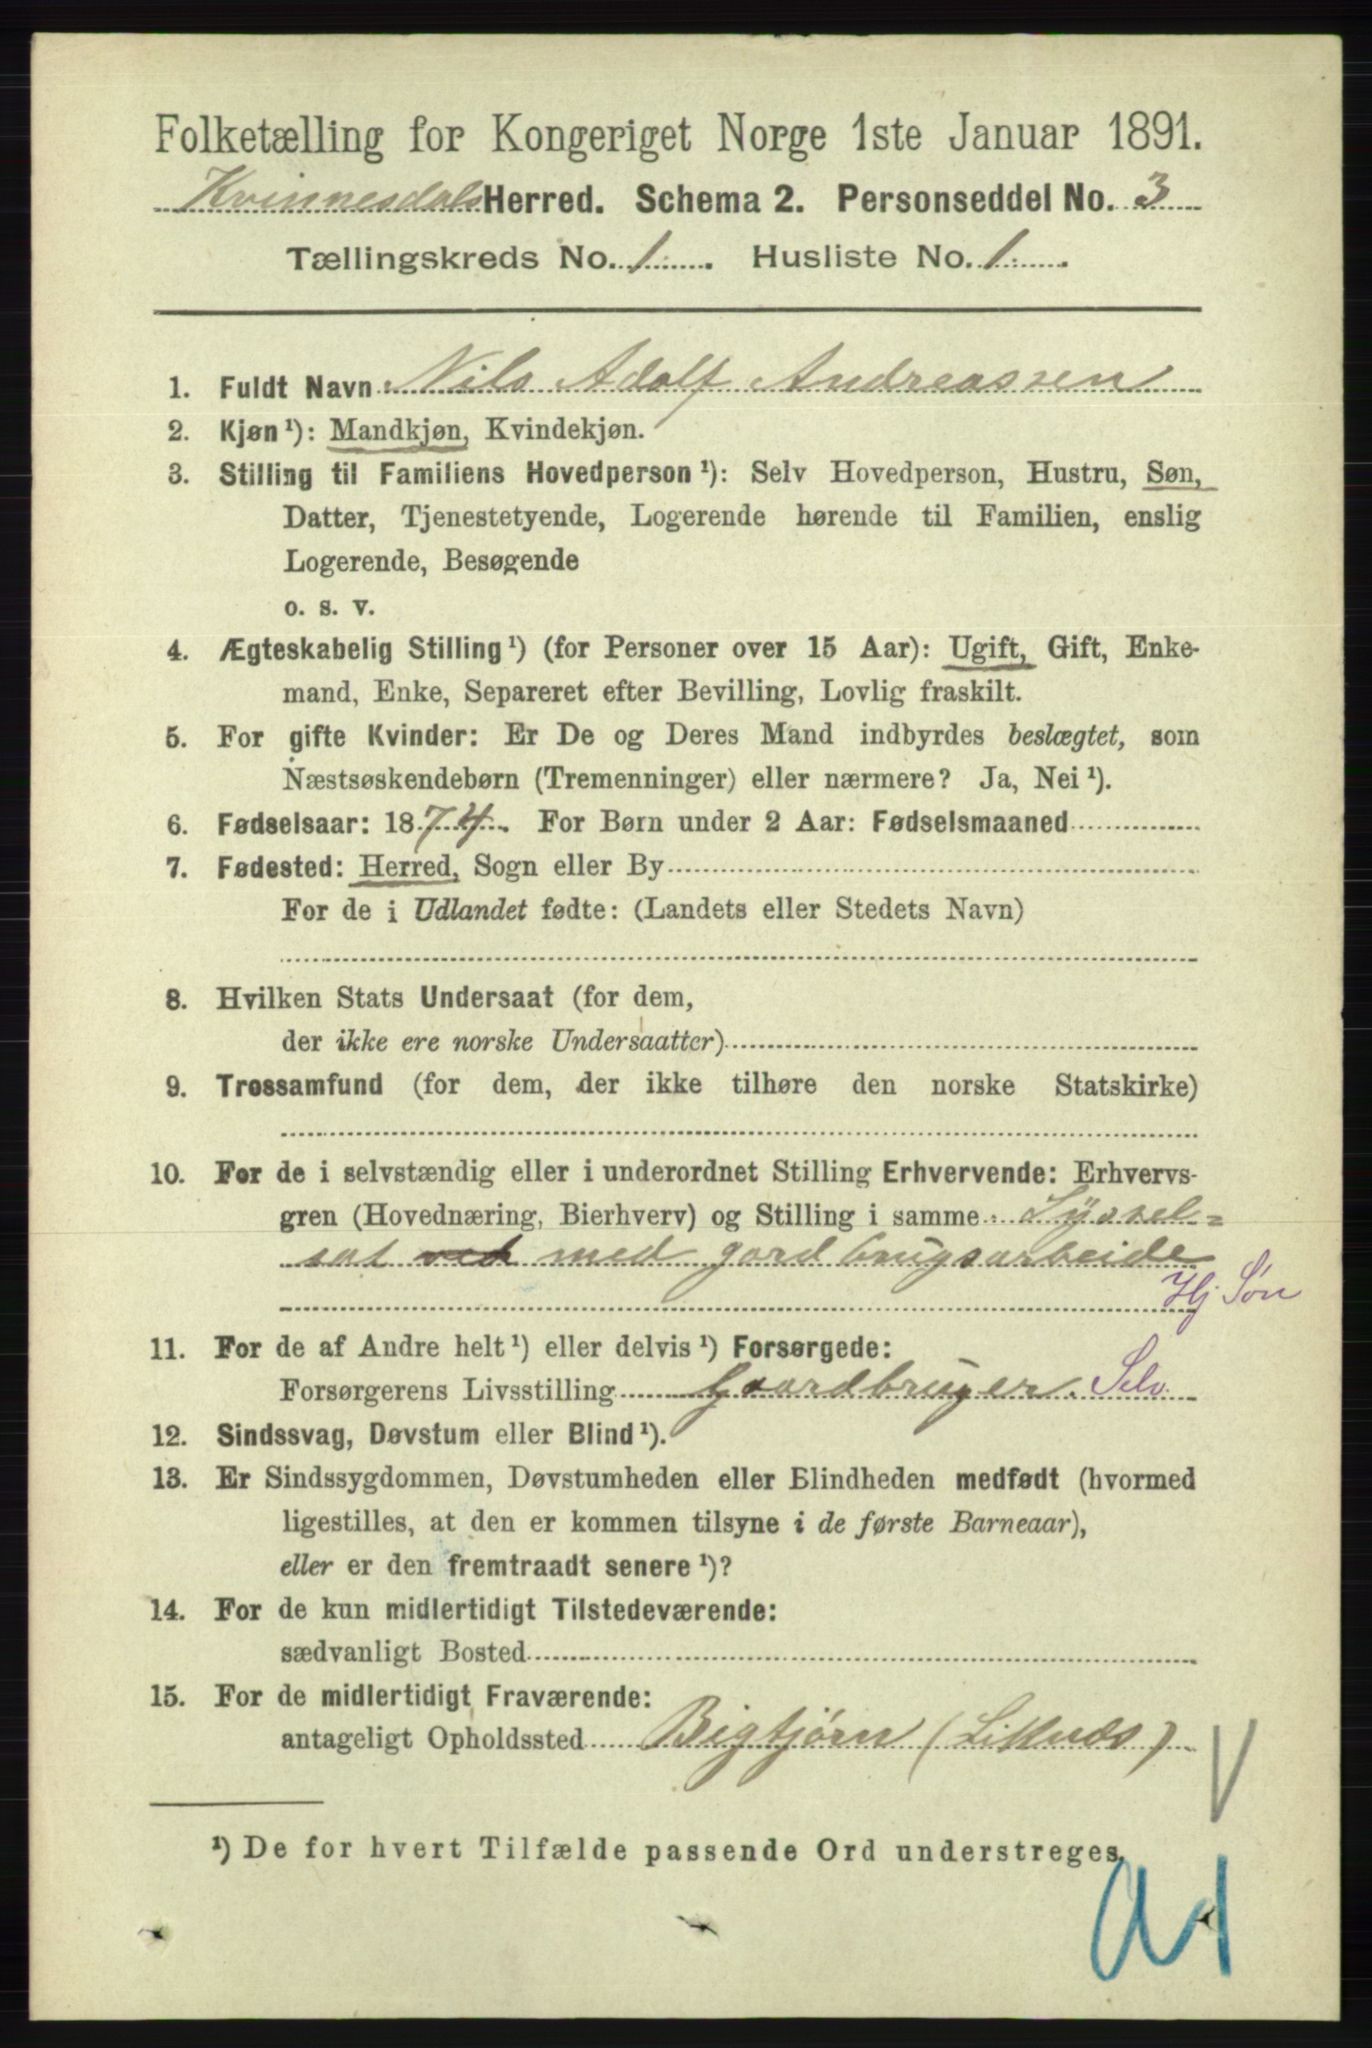 Folketælling for Kongeriget Norge 1ste Januar 1891.
Kvinnesdals Herred. Schema 2. Personseddel No. 3
Tællingskreds No. 1. Husliste No. 1.
1. Fuldt Navn Nils Adolf Andreassen
2. Kjøn¹): Mandkjøn, Kvindekjøn.
3. Stilling til Familiens Hovedperson¹): Selv Hovedperson, Hustru, Søn,
Datter, Tjenestetyende, Logerende hørende til Familien, enslig
Logerende, Besøgende
o. s. v.
4. Ægteskabelig Stilling¹) (for Personer over 15 Aar): Ugift, Gift, Enke-
mand, Enke, Separeret efter Bevilling, Lovlig fraskilt.
5. For gifte Kvinder: Er De og Deres Mand indbyrdes beslægtet, som
Næstsøskendebørn (Tremenninger) eller nærmere? Ja, Nei¹).
6. Fødselsaar: 1874. For Børn under 2 Aar: Fødselsmaaned
7. Fødested: Herred, Sogn eller By
For de i Udlandet fødte: (Landets eller Stedets Navn)
8. Hvilken Stats Undersaat (for dem,
der ikke ere norske Undersaatter)
9. Trossamfund (for dem, der ikke tilhøre den norske Statskirke)
10. For de i selvstændig eller i underordnet Stilling Erhvervende: Erhvervs-
gren (Hovednæring, Bierhverv) og Stilling i samme Syssel=
sat ved med gardbrugsarbeide
Hj. Søn
11. For de af Andre helt¹) eller delvis¹) Forsørgede:
Forsørgerens Livsstilling Gaardbruger. Selv.
12. Sindssvag, Døvstum eller Blind¹).
13. Er Sindssygdommen, Døvstumheden eller Blindheden medfødt (hvormed
ligestilles, at den er kommen tilsyne i de første Barneaar),
eller er den fremtraadt senere¹)?
14. For de kun midlertidigt Tilstedeværende:
sædvanligt Bosted
15. For de midlertidigt Fraværende:
antageligt Opholdssted Bigtjørn
¹) De for hvert Tilfælde passende Ord understreges.